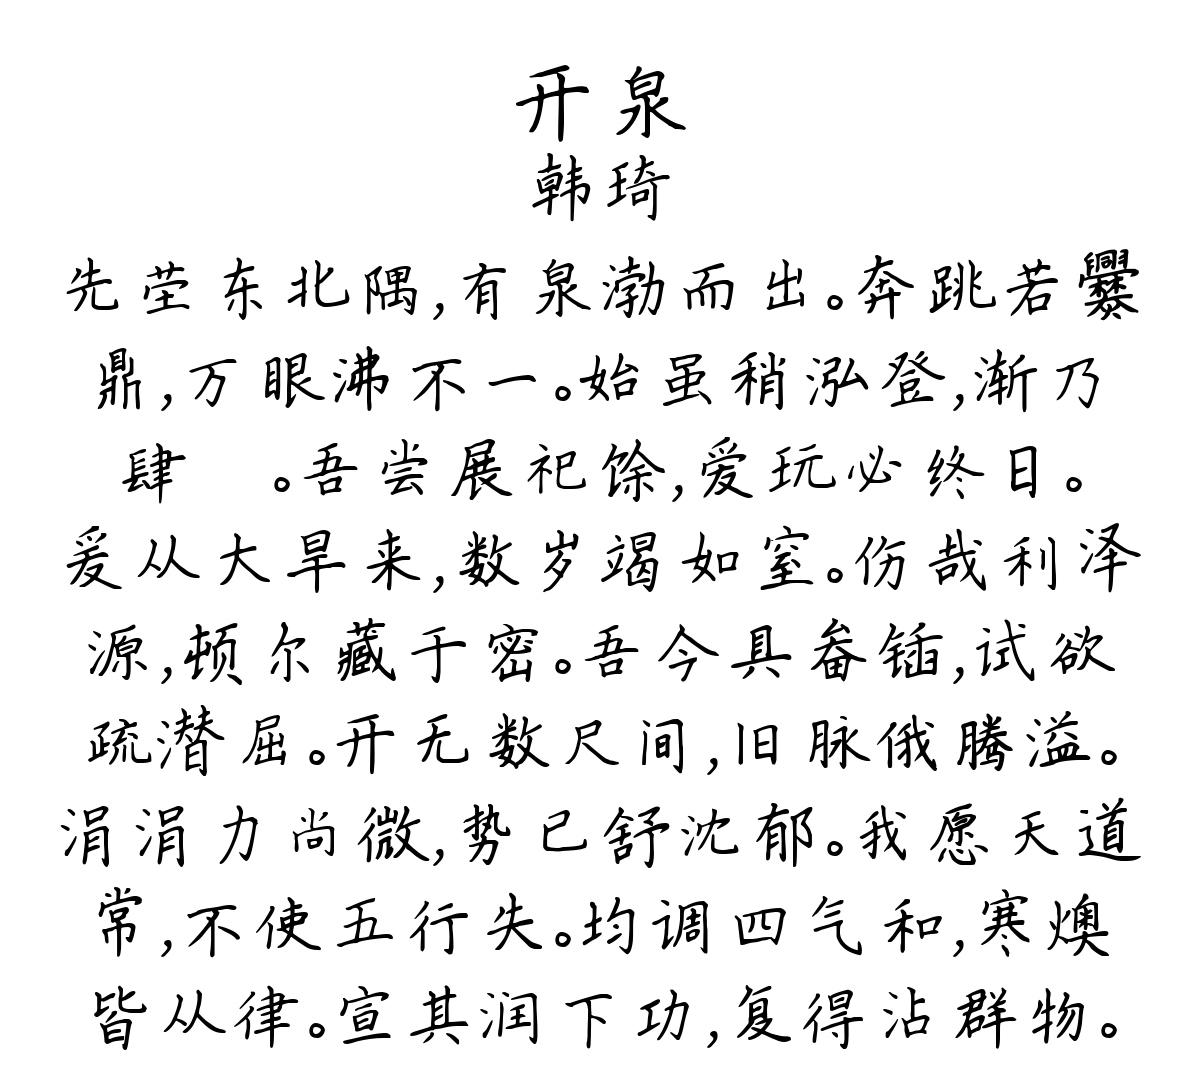 开泉
韩琦
先茔东北隅,有泉渤而出。奔跳若爨
鼎,万眼沸不一。始虽稍泓登,渐乃
肆 。吾尝展祀馀,爱玩必终日。
爰从大旱来,数岁竭如窒。伤哉利泽
源,顿尔藏于密。吾今具畚锸,试欲
疏潜屈。开无数尺间,旧脉俄腾溢。
涓涓力尚微,势已舒沈郁。我愿天道
常,不使五行失。均调四气和,寒燠
皆从律。宣其润下功,复得沾群物。